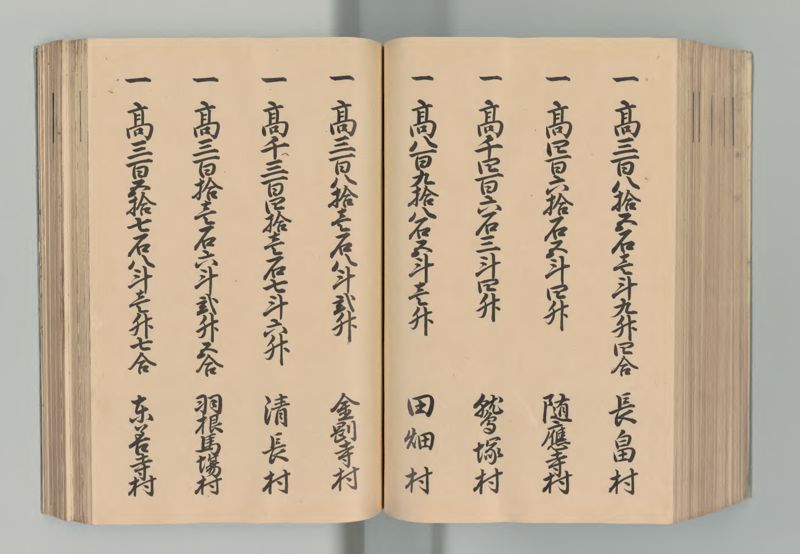 一 高三百八拾五石壱斗九升四合 長畠村
一 高四百六拾石五斗四升 随應寺村
一 高千四百六石三斗四升 鷲塚村
一 高八百九拾八石五斗壱升 田畑村
一 高三百八拾壱石八斗弐升 金剛寺村
一 高千三百四拾壱石七斗六升 清長村
一 高三百拾壱石六斗弐升五合 羽根馬場村
一 高三百五拾七石八斗壱升七合 东善寺村